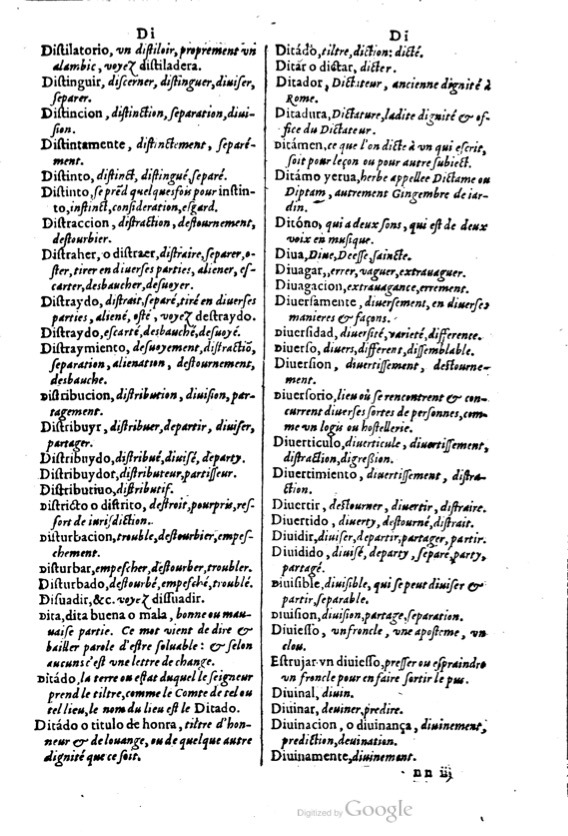 Di
Distilatorio, vn distiloir, proprement vn
alambic, voyez distiladera.
Distinguir, discerner, distinguer, diuiser,
separer.
Distincion, distinction, separation, diui-
sion.
Distintamente, distinctement, separé-
ment.
Distinto, distinct, distingué, separé.
Distinto, se prẽd quelquesfois pour instin-
to, instinct, consideration, esgard.
Distraccion, distraction, destournement,
destourbier.
Distraher, o distraer, distraire, separer, o-
ster, tirer en diuerses parties, aliener, es-
carter, desbaucher, desuoyer.
Distraydo, distrait, separé, tiré en diuerses
parties, aliené, osté, voyez destraydo.
Distraydo, escarté, desbauché, desuoyé.
Distraymiento, desuoyement, distractiõ,
separation, alienation, destournement,
desbauche.
Distribucion, distribution, diuision, par-
tagement.
Distribuyr, distribuer, departir, diuiser,
partager.
Distribuydo, distribué, diuisé, departy.
Distribuydor, distributeur, partisseur.
Distributiuo, distributif.
Districto o distrito, destroit, pourpris, res-
sort de iurisdiction.
Disturbacion, trouble, destourbier, empes-
chement.
Disturbar, empescher, destourber, troubler.
Disturbado, destourbé, empesché, troublé.
Disuadir, &c. voyez dissuadir.
Dita, dita buena o mala, bonne ou mau-
uaise partie. Ce mot vient de dire &
bailler parole d'estre soluable: & selon
aucuns c'est vne lettre de change.
Ditádo, la terre ou estat duquel le seigneur
prend le tiltre, comme le Comte de tel ou
tel lieu, le nom du lieu est le Ditado.
Ditádo o titulo de honra, tiltre d'hon-
neur & de louange, ou de quelque autre
dignité que ce soit.
Di
Ditádo, tiltre, diction: dicté.
Ditar o dictar, dicter.
Ditador, Dictateur, ancienne dignité à
Rome.
Ditadura, Dictature, ladite dignité & of-
fice du Dictateur.
Ditámen, ce que l'on dicte à vn qui escrit,
soit pour leçon ou pour autre subiect.
Ditámo yerua, herbe appellee Dictame ou
Diptam, autrement Gingembre de iar-
din.
Ditóno, qui a deux sons, qui est de deux
voix en musique.
Diua, Diue, Deesse, saincte.
Diuagar,, errer, vaguer, extrauaguer.
Diuagacion, extrauagance, errement.
Diuersamente, diuersement, en diuerses
manieres & façons.
Diuersidad, diuersité, varieté, difference.
Diuerso, diuers, different, dissemblable.
Diuersion, diuertissement, destourne-
ment.
Diuersorio, lieu où se rencontrent & con-
current diuerses sortes de personnes, com-
me vn logis ou hostellerie.
Diuerticulo, diuerticule, diuertissement,
distraction, digression.
Diuertimiento, diuertissement, distra-
ction.
Diuertir, destourner, diuertir, distraire.
Diuertido, diuerty, destourné, distrait.
Diuidir, diuiser, departir, partager, partir.
Diuidido, diuisé, departy, separé, party,
partagé.
Diuisible, diuisible, qui se peut diuiser &
partir, separable.
Diuision, diuision, partage, separation.
Diuiesso, vn froncle, vne aposteme, vn
clou.
Estrujar vn diuiesso, presser ou espraindre
vn froncle pour en faire sortir le pus.
Diuinal, diuin.
Diuinar, deuiner, predire.
Diuinacion, o diuinança, diuinement,
prediction, deuination.
Diuinamente, diuinement.
nn iij
Digitized by Google